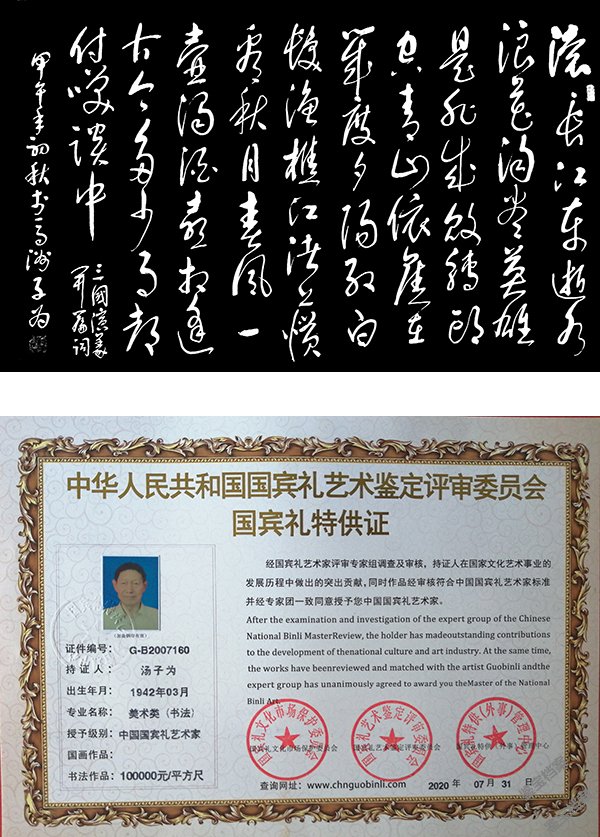 滚长江东逝水
浪花淘尽英雄
是非成败转头
空青山依旧在
几度夕阳红白
发渔樵江渚上惯
看秋月春风一
壶浊酒喜相逢
古今多少事都
付笑谈中
三國演義
开篇词
甲午年初秋书于 子为
中华人民共和国国宾礼艺术鉴定评审委员会
国宾礼特供证
经国宾礼艺术家评审专家组调查及审核，持证人在国家文化艺术事业的
发展历程中做出的突出贡献,同时作品经审核符合中国国宾礼艺术家标准
并经专家团一致同意授予您中国国宾礼艺术家。
After the examination and investigation of the expert group of the Chinese
National Binli MasterReview, the holder has madeoutstanding contributions
to the development of thenational culture and art industry. At the same time,
the works have beenreviewed and matched with the artist Guobinli andthe
expert group has unanimously agreed to award you theMaster of the National
Binli Art.
(加盖钢印有效)
证件编号： G-B2007160
持 证 人： 汤子为
出生年月： 1942年03月
专业名称： 美术类（书法）
授予级别： 中国国宾礼艺术家
国画作品：
书法作品： 100000元/平方尺
国宾礼文化市场保护委员会
国宾礼艺术鉴定评审委员会
国宾礼特供（外事）管理中心
查询网址：www.chnguobinli.com
2020 年 07 月 31 日